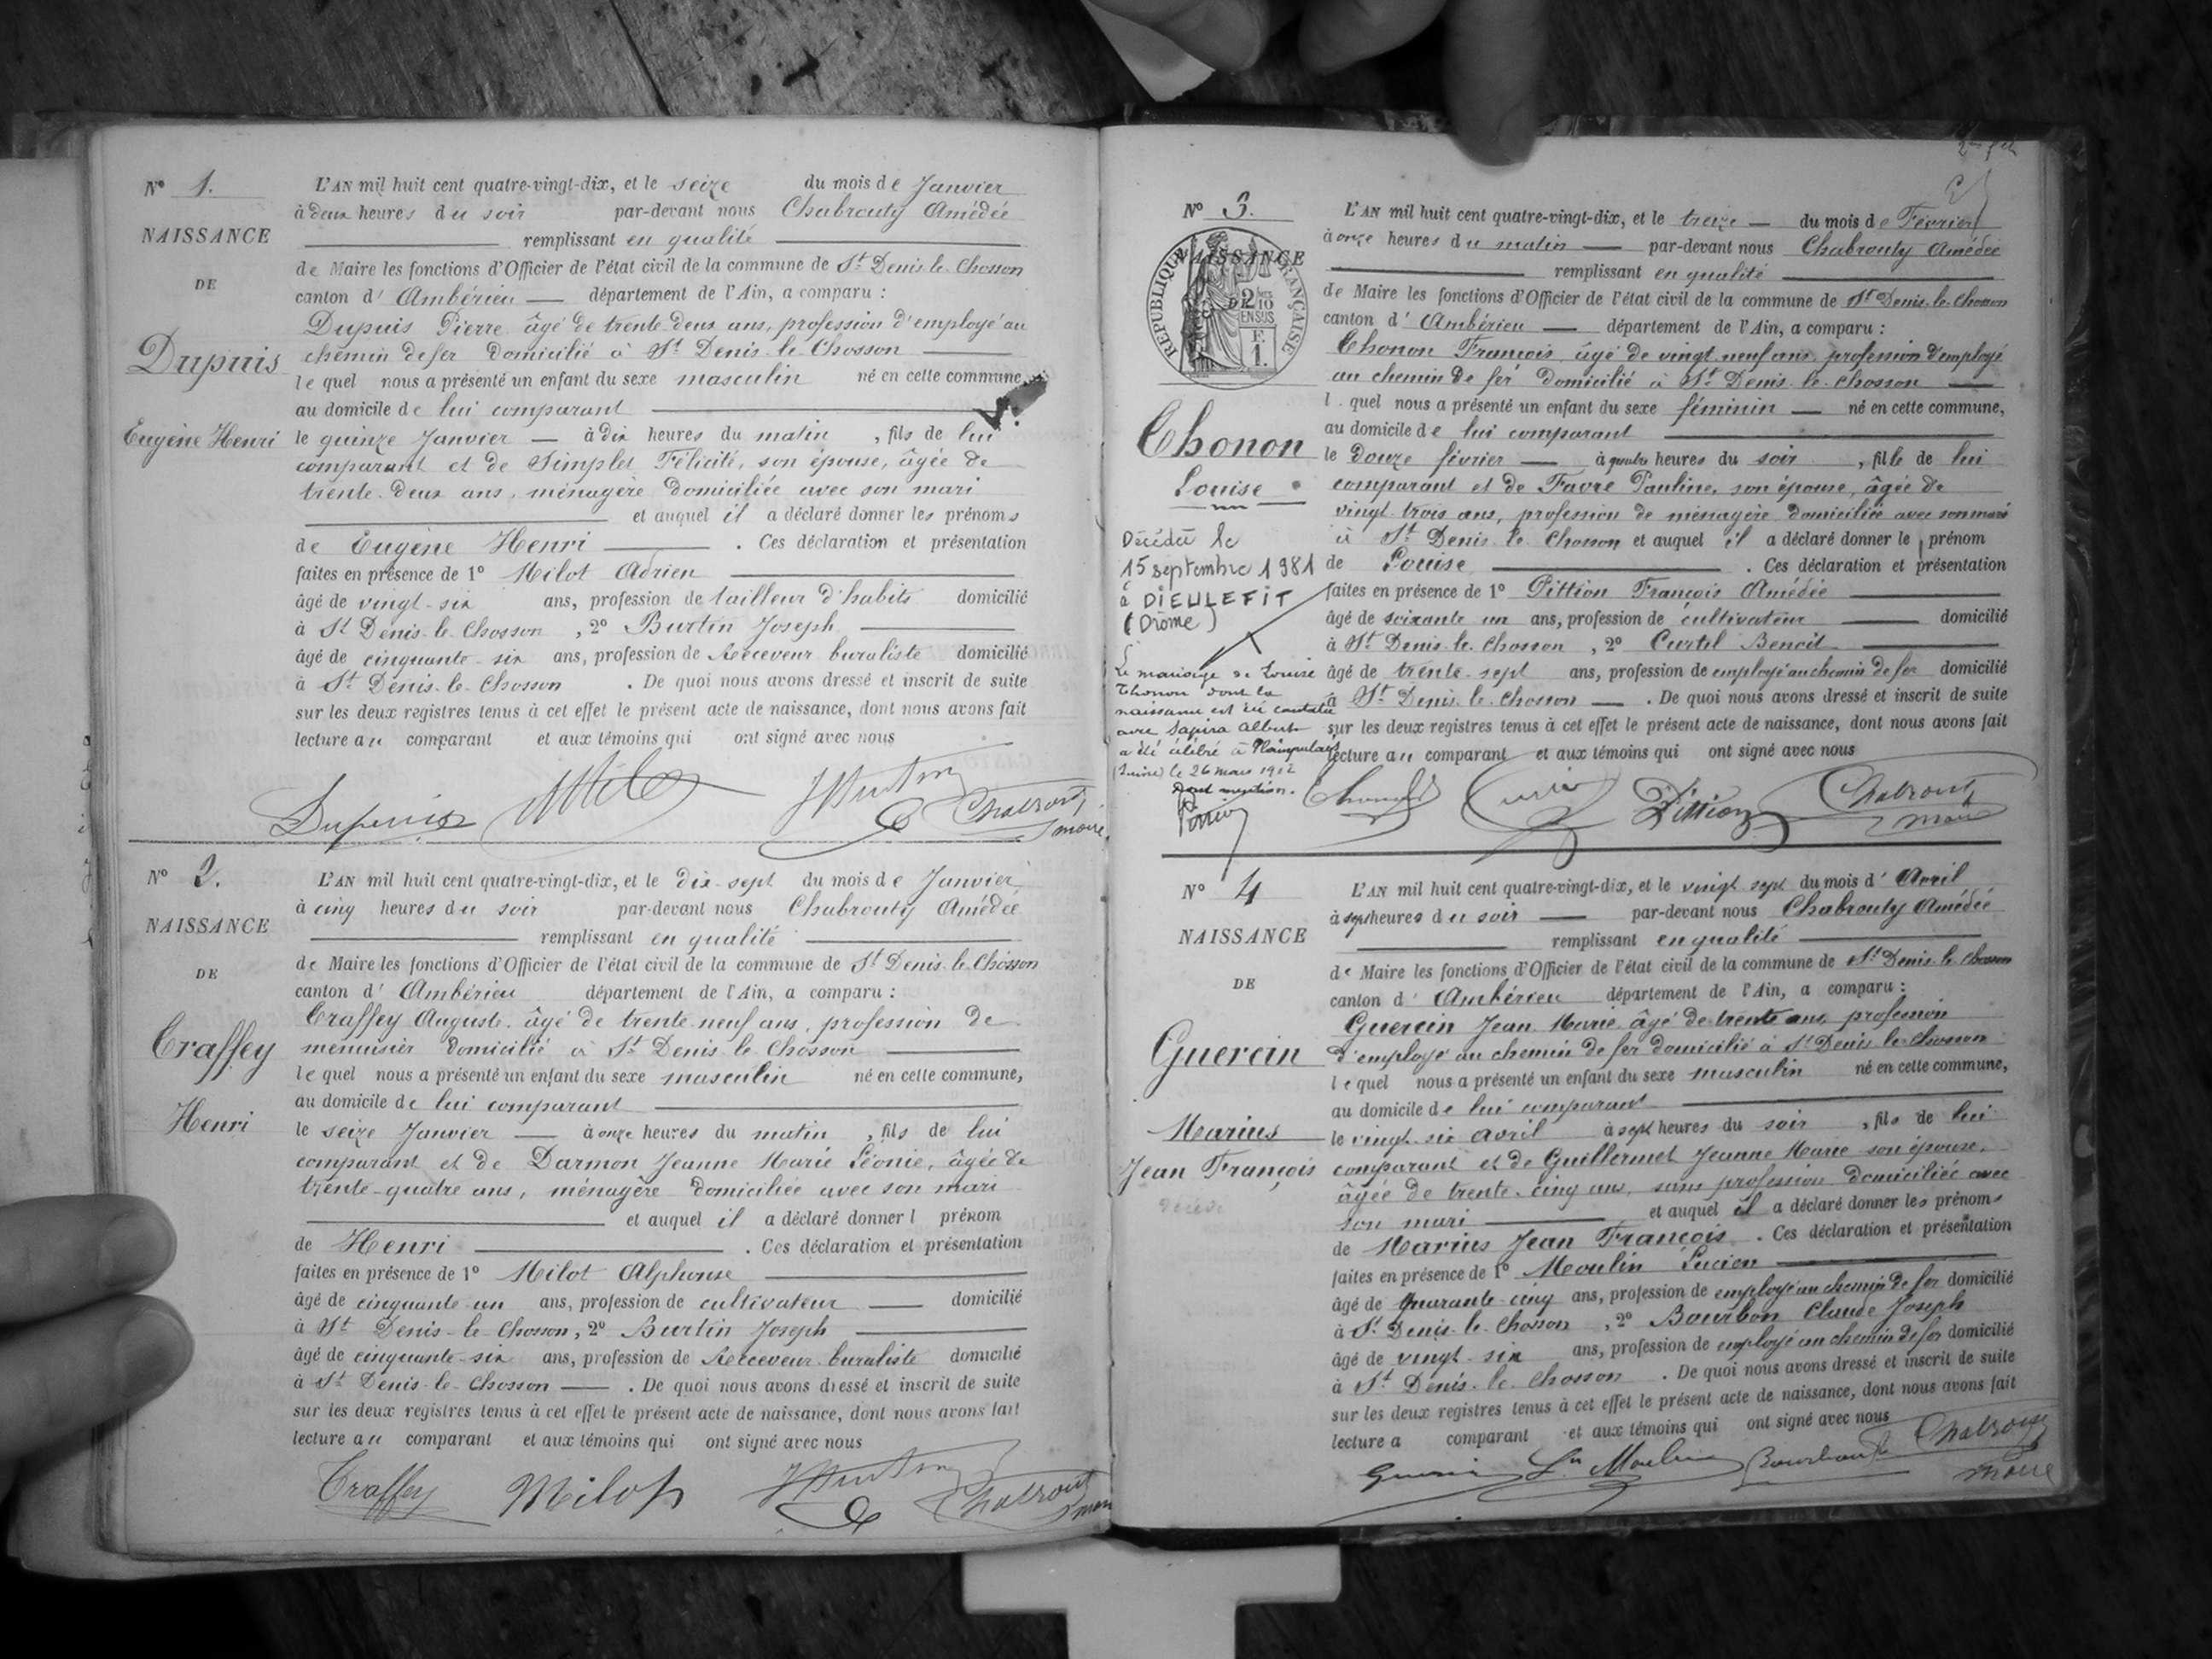 N° 1.
NAISSANCE
DE
Dupuis
Eugène Henri
L'AN mil huit cent quatre-vingt-dix, et le seize du mois de Janvier
à deux heures du soir par-devant nous Chabrouty Amédée
remplissant en qualité
de Maire les fonctions d'Officier de l'état civil de la commune de St Denis-le-Chosson
canton d' Ambérieu département de l'Ain, a comparu :
Dupuis Pierre âgé de trente deux ans, profession d'employé au
chemin de fer domicilié à St Denis-le-Chosson
lequel nous a présenté un enfant du sexe masculin né en cette commune,
au domicile de lui comparant
le quinze Janvier à dix heures du matin, fils de lui
comparant et de Simplet Félicité, son épouse, âgée de
trente-deux ans, ménagère domiciliée avec son mari
et auquel il a déclaré donner les prénoms
de Eugène Henri . Ces déclaration et présentation
faites en présence de 1° Milot Adrien
âgé de vingt-six ans, profession de tailleur d'habits domicilié
à St Denis-le-Chosson , 2° Burtin Joseph
âgé de cinquante-six ans, profession de Receveur buraliste domicilié
à St Denis-le-Chosson . De quoi nous avons dressé et inscrit de suite
sur les deux registres tenus à cet effet le présent acte de naissance, dont nous avons fait
lecture au comparant et aux témoins qui ont signé avec nous
Dupuis Milot JBurtin Chabrouty maire
N° 2.
NAISSANCE
DE
Traffey
Henri
L'AN mil huit cent quatre-vingt-dix, et le dix-sept du mois de Janvier
à cinq heures du soir par-devant nous Chabrouty Amédée
remplissant en qualité
de Maire les fonctions d'Officier de l'état civil de la commune de St Denis-le-Chosson
canton d' Ambérieu département de l'Ain, a comparu :
Traffey Auguste, âgé de trente-neuf ans, profession de
menuisier domicilié à St Denis-le-Chosson
lequel nous a présenté un enfant du sexe masculin né en cette commune,
au domicile de lui comparant
le seize Janvier à onze heures du matin, fils de lui
comparant et de Darmon Jeanne Marie Léonie, âgée de
trente-quatre ans, ménagère domiciliée avec son mari
et auquel il a déclaré donner l prénom
de Henri . Ces déclaration et présentation
faites en présence de 1° Milot Alphonse
âgé de cinquante-un ans, profession de cultivateur domicilié
à St Denis-le-Chosson, 2° Burtin Joseph
âgé de cinquante-six ans, profession de Receveur buraliste domicilié
à St Denis-le-Chosson . De quoi nous avons dressé et inscrit de suite
sur les deux registres tenus à cet effet le présent acte de naissance, dont nous avons fait
lecture au comparant et aux témoins qui ont signé avec nous
Traffey Milot JBurtin Chabrouty maire
N° 3.
NAISSANCE
DE
RÉPUBLIQUE FRANÇAISE
2/10
EN SUS
F.
1.
Thonon
Louise
Décédée le
15 septembre 1981
à DIEULEFIT
(Drôme)
Le mariage de Louise
Thonon dont la
naissance est ici constatée
avec Sapira Albert
a été célébré à Plainpalais
(Suisse) le 26 mars 1912
dont mention.
L'AN mil huit cent quatre-vingt-dix, et le treize du mois de Février
à onze heures du matin par-devant nous Chabrouty Amédée
remplissant en qualité
de Maire les fonctions d'Officier de l'état civil de la commune de St Denis-le-Chosson
canton d' Ambérieu département de l'Ain, a comparu :
Thonon François âgé de vingt-neuf ans, profession d'employé
au chemin de fer domicilié à St Denis-le-Chosson
l quel nous a présenté un enfant du sexe féminin né en cette commune,
au domicile de lui comparant
le douze février à quatre heures du soir , fille de lui
comparant et de Favre Pauline, son épouse, âgée de
vingt-trois ans, profession de ménagère domiciliée avec son mari
à St Denis-le-Chosson et auquel il a déclaré donner le prénom
de Louise . Ces déclaration et présentation
faites en présence de 1° Pittion François Amédée
âgé de soixante un ans, profession de cultivateur domicilié
à St Denis-le-Chosson , 2° Curtil Benoit
âgé de trente-sept ans, profession de employé au chemin de fer domicilié
à St Denis-le-Chosson . De quoi nous avons dressé et inscrit de suite
sur les deux registres tenus à cet effet le présent acte de naissance, dont nous avons fait
lecture au comparant et aux témoins qui ont signé avec nous
Pittion Chabrouty maire
N° 4
NAISSANCE
DE
Guercin
Marius
Jean François
L'AN mil huit cent quatre-vingt-dix, et le vingt sept du mois d' Avril
à sept heures du soir par-devant nous Chabrouty Amédée
remplissant en qualité
de Maire les fonctions d'Officier de l'état civil de la commune de St Denis-le-Chosson
canton d' Ambérieu département de l'Ain, a comparu :
Guercin Jean Marie âgé de trente ans, profession
d'employé au chemin de fer domicilié à St Denis-le-Chosson
lequel nous a présenté un enfant du sexe masculin né en cette commune,
au domicile de lui comparant
le vingt-six avril à sept heures du soir , fils de lui
comparant et de Guillermet Jeanne Marie son épouse,
âgée de trente-cinq ans, sans profession domiciliée avec
son mari et auquel il a déclaré donner les prénoms
de Marius Jean François . Ces déclaration et présentation
faites en présence de 1° Moulin Lucien
âgé de quarante-cinq ans, profession de employé au chemin de fer domicilié
à St Denis-le-Chosson , 2° Bourbon Claude Joseph
âgé de vingt-six ans, profession de employé au chemin de fer domicilié
à St Denis-le-Chosson . De quoi nous avons dressé et inscrit de suite
sur les deux registres tenus à cet effet le présent acte de naissance, dont nous avons fait
lecture a comparant et aux témoins qui ont signé avec nous
Guercin Ln Moulin Bourbon Chabrouty maire